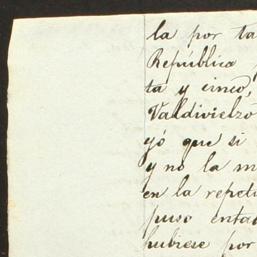 la por ta
República
ta y cinco,
Valdivielzo
yó que si
y no la m
en la repeti
puso enta
hubiese por